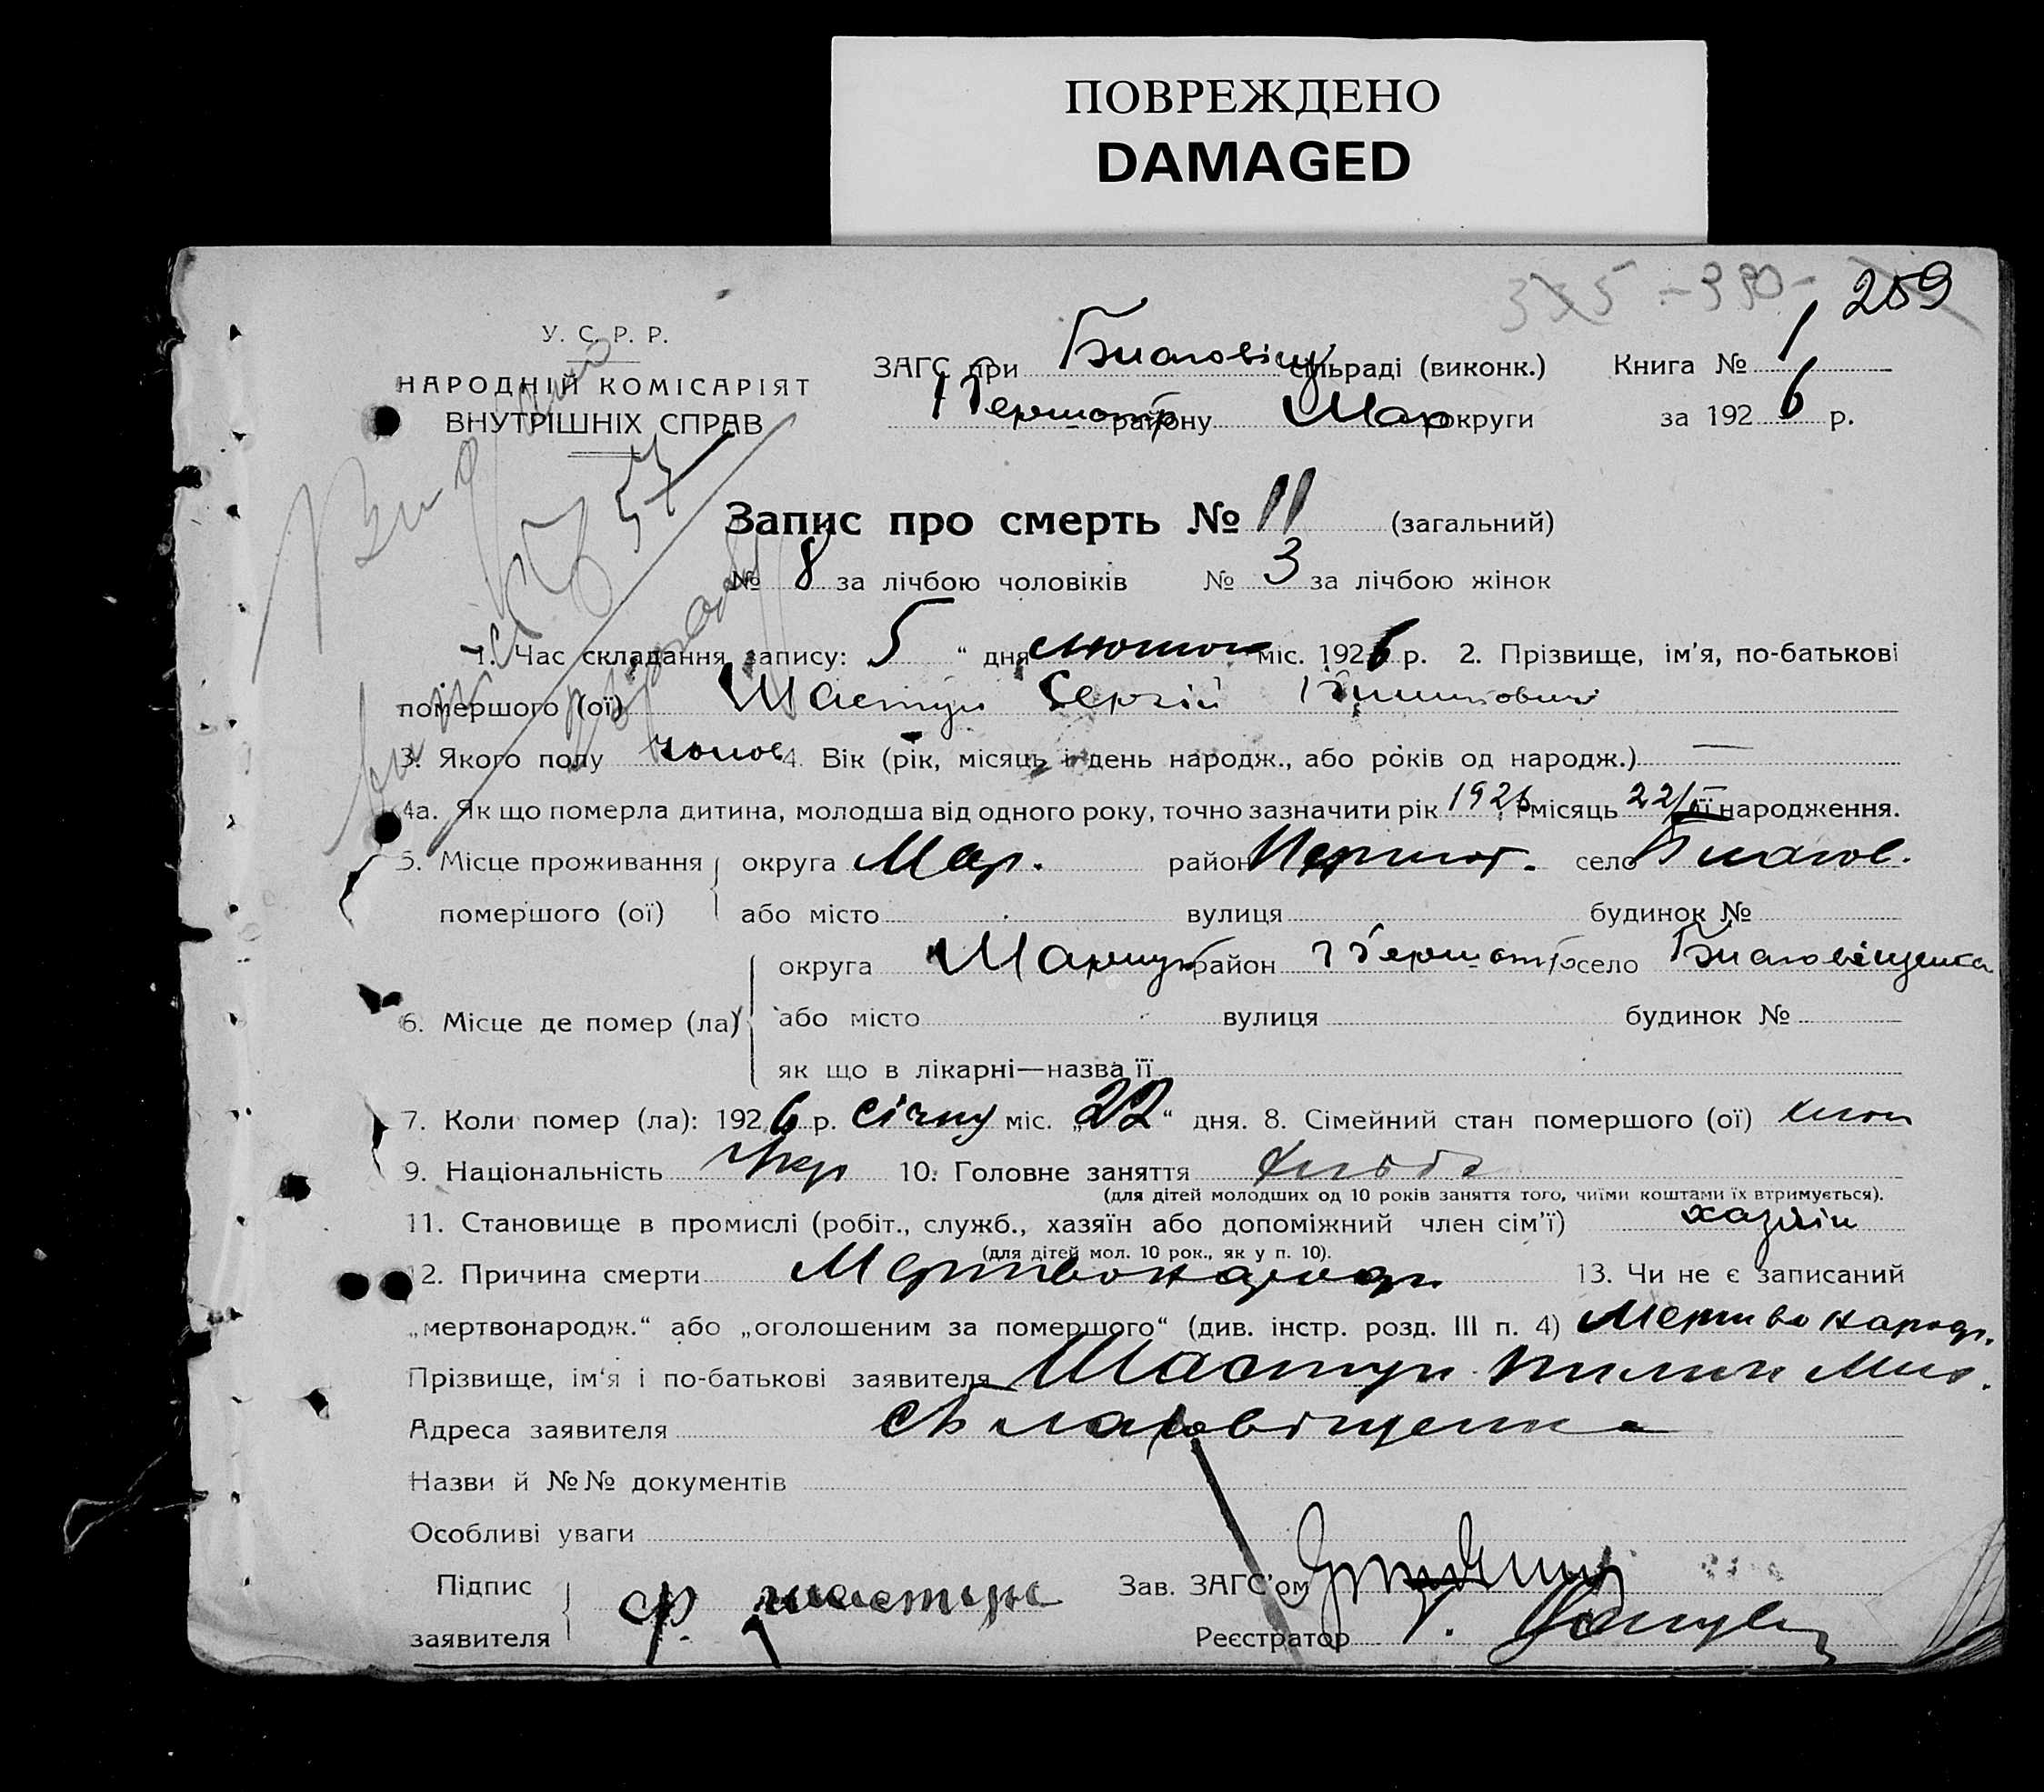 ПОВРЕЖДЕНО
DAMAGED
259
У. С. Р. Р.
НАРОДНІЙ КОМІСАРІЯТ
ВНУТРІШНІХ СПРАВ
ЗАГС при Благовіщ сільраді (виконк.) Книга № 1
Першотр району Мар округи за 1926 р.
Запис про смерть № 11 (загальний)
№ 8 за лічбою чоловіків № 3 за лічбою жінок
1. Час складання запису: 5 “ дня лютого міс. 1926 р. 2. Прізвище, ім’я, по-батькові
помершого (ої) Шастун Сергій
3. Якого полу чолов 4. Вік (рік, місяць і день народж., або років од народж.) —
4а. Як що померла дитина, молодша від одного року, точно зазначити рік 1926 місяць 22/I її народження.
5. Місце проживання помершого (ої) округа Мар. район Першот. село Благов.
або місто вулиця будинок №
6. Місце де помер (ла) округа Маріуп район Першотр село Благовіщенка
або місто вулиця будинок №
як що в лікарні—назва її
7. Коли помер (ла): 1926 р. січну міс. „22“ дня. 8. Сімейний стан помершого (ої)
9. Національність Укр 10. Головне заняття хлібо
(для дітей молодших од 10 років заняття того, чиїми коштами їх втримується).
11. Становище в промислі (робіт., служб., хазяїн або допоміжний член сім’ї) хазяін
(для дітей мол. 10 рок., як у п. 10).
12. Причина смерти Мертвонарод 13. Чи не є записаний
„мертвонародж.“ або „оголошеним за помершого“ (див. інстр. розд. III п. 4) Мертвонарод.
Прізвище, ім’я і по-батькові заявителя Шастун
Адреса заявителя с Благовіщенка
Назви й №№ документів
Особливі уваги
Підпис заявителя Ф. шастун Зав. ЗАГС’ом
Реєстратор